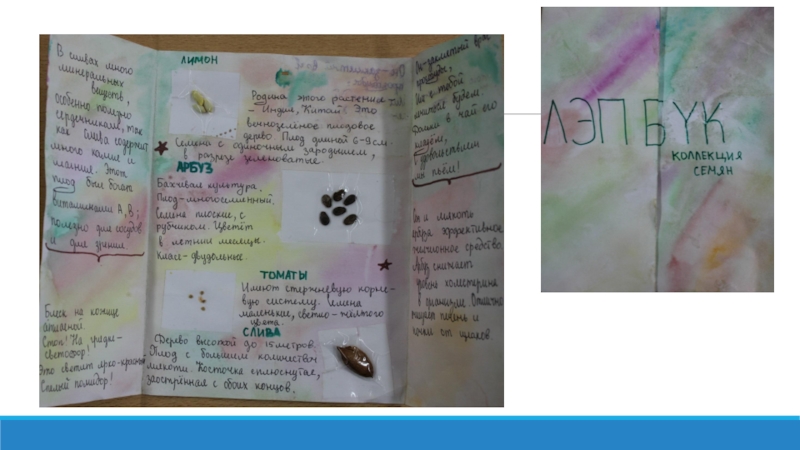 В сливах много
минеральных
веществ,
Особенно полезно
сердечникам, так
как слива содержит
много калия и
магния. Этот
плод был богат
витаминами А, В;
полезно для сосудов
и для зрения.
Блеск на кожице
атласной.
Стоп! На гряде-
светофор!
Это светит ярко-красный
Спелый помидор!
ЛИМОН
Родина этого растения
- Индия, Китай. Это
вечнозелёное плодовое
дерево Плод длиной 6-9 см.
Семена с одиночным зародышем,
в разрезе зеленоватые.
АРБУЗ
Бахчевая культура,
Плод-многосемянный.
Семена плоские, с
рубчиком. Цветёт
в летние месяцы.
Класс-двудольные.
ТОМАТЫ
Имеют стержневую корне-
вую систему. Семена
маленькие, светло-жёлтого
цвета.
СЛИВА
Дерево высотой до 15 метров.
Плод с большим количеством
мякоти. Косточка сплюснутая,
заострённая с обоих концов.
Он-заклятый враг
простуды,
с тобой
в чай его
кладём,
удовольствием
мы пьём!
и мякоть
эффективное
средство.
Арбуз снижает
холестерина
в организме. Отлично
печень и
почки от шлаков
ЛЭПБУК
КОЛЛЕКЦИЯ
СЕМЯН